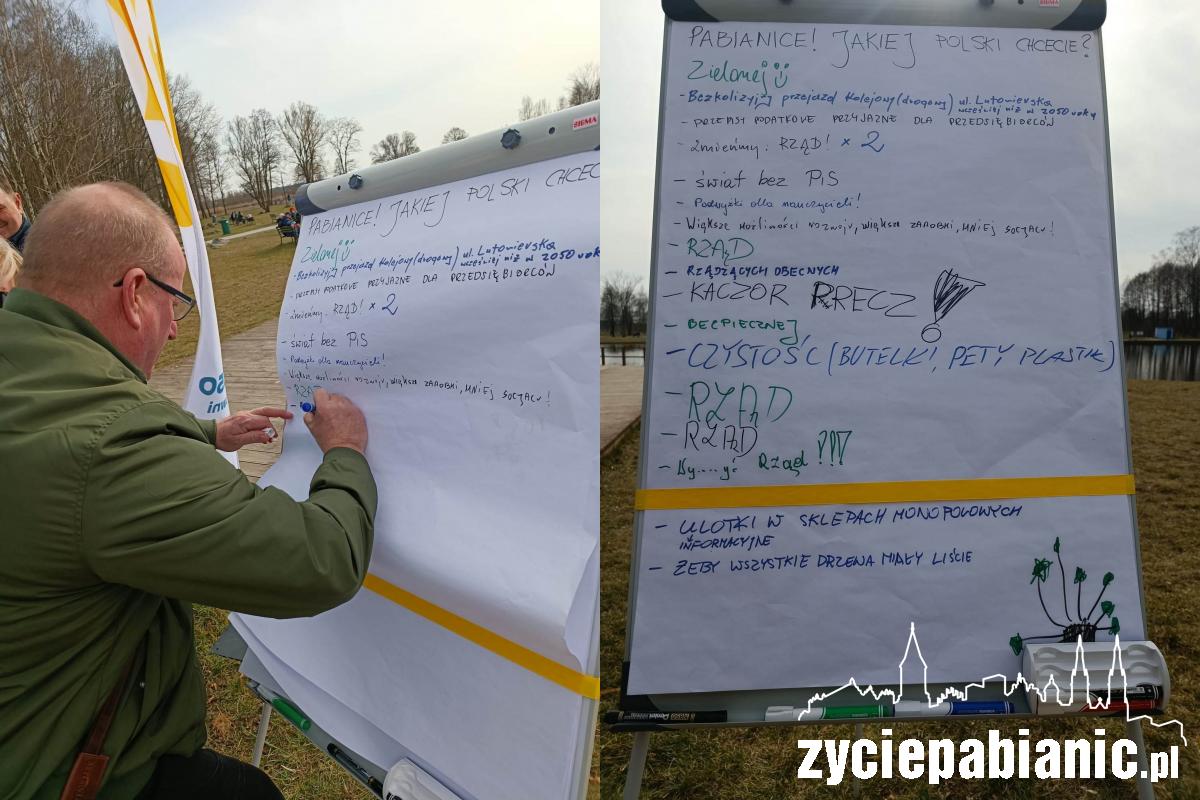 SIEMA
PABIANICE! JAKIEJ POLSKI CHCEC
Zielonej
- Bezkolizyjny przejazd kolejowy (drogowy) ul. Lutomierska
wcześniej niż w 2050 rok
- PRZEPISY PODATKOWE PRZYJAZNE DLA PRZEDSIĘBIORCÓW
- zmieńmy: RZĄD! × 2
- świat bez PiS
- Podwyżki dla nauczycieli!
- Większe możliwości rozwoju, większe ZAROBKI, MNIEJ SOCJALU!
- RZĄ
PABIANICE! JAKIEJ POLSKI CHCECIE?
Zielonej
- Bezkolizyjny przejazd kolejowy (drogowy) ul. Lutomierska
wcześniej niż w 2050 roku
- PRZEPISY PODATKOWE PRZYJAZNE DLA PRZEDSIĘBIORCÓW
- zmieńmy: RZĄD! × 2
- świat bez PiS
- Podwyżki dla nauczycieli!
- Większe możliwości rozwoju, większe ZAROBKI, MNIEJ SOCJALU!
- RZĄD
- RZĄDZĄCYCH OBECNYCH
- KACZOR RRECZ !
- BECPIECZNEJ
- CZYSTOŚC (BUTELKI, PETY PLASTIK)
- RZĄD
- RZĄD
- Rząd !!!
- ULOTKI W SKLEPACH MONOPOLOWYCH
INFORMACYJNE
- ŻEBY WSZYSTKIE DRZEWA MIAŁY LIŚCIE
zyciepabianic.pl